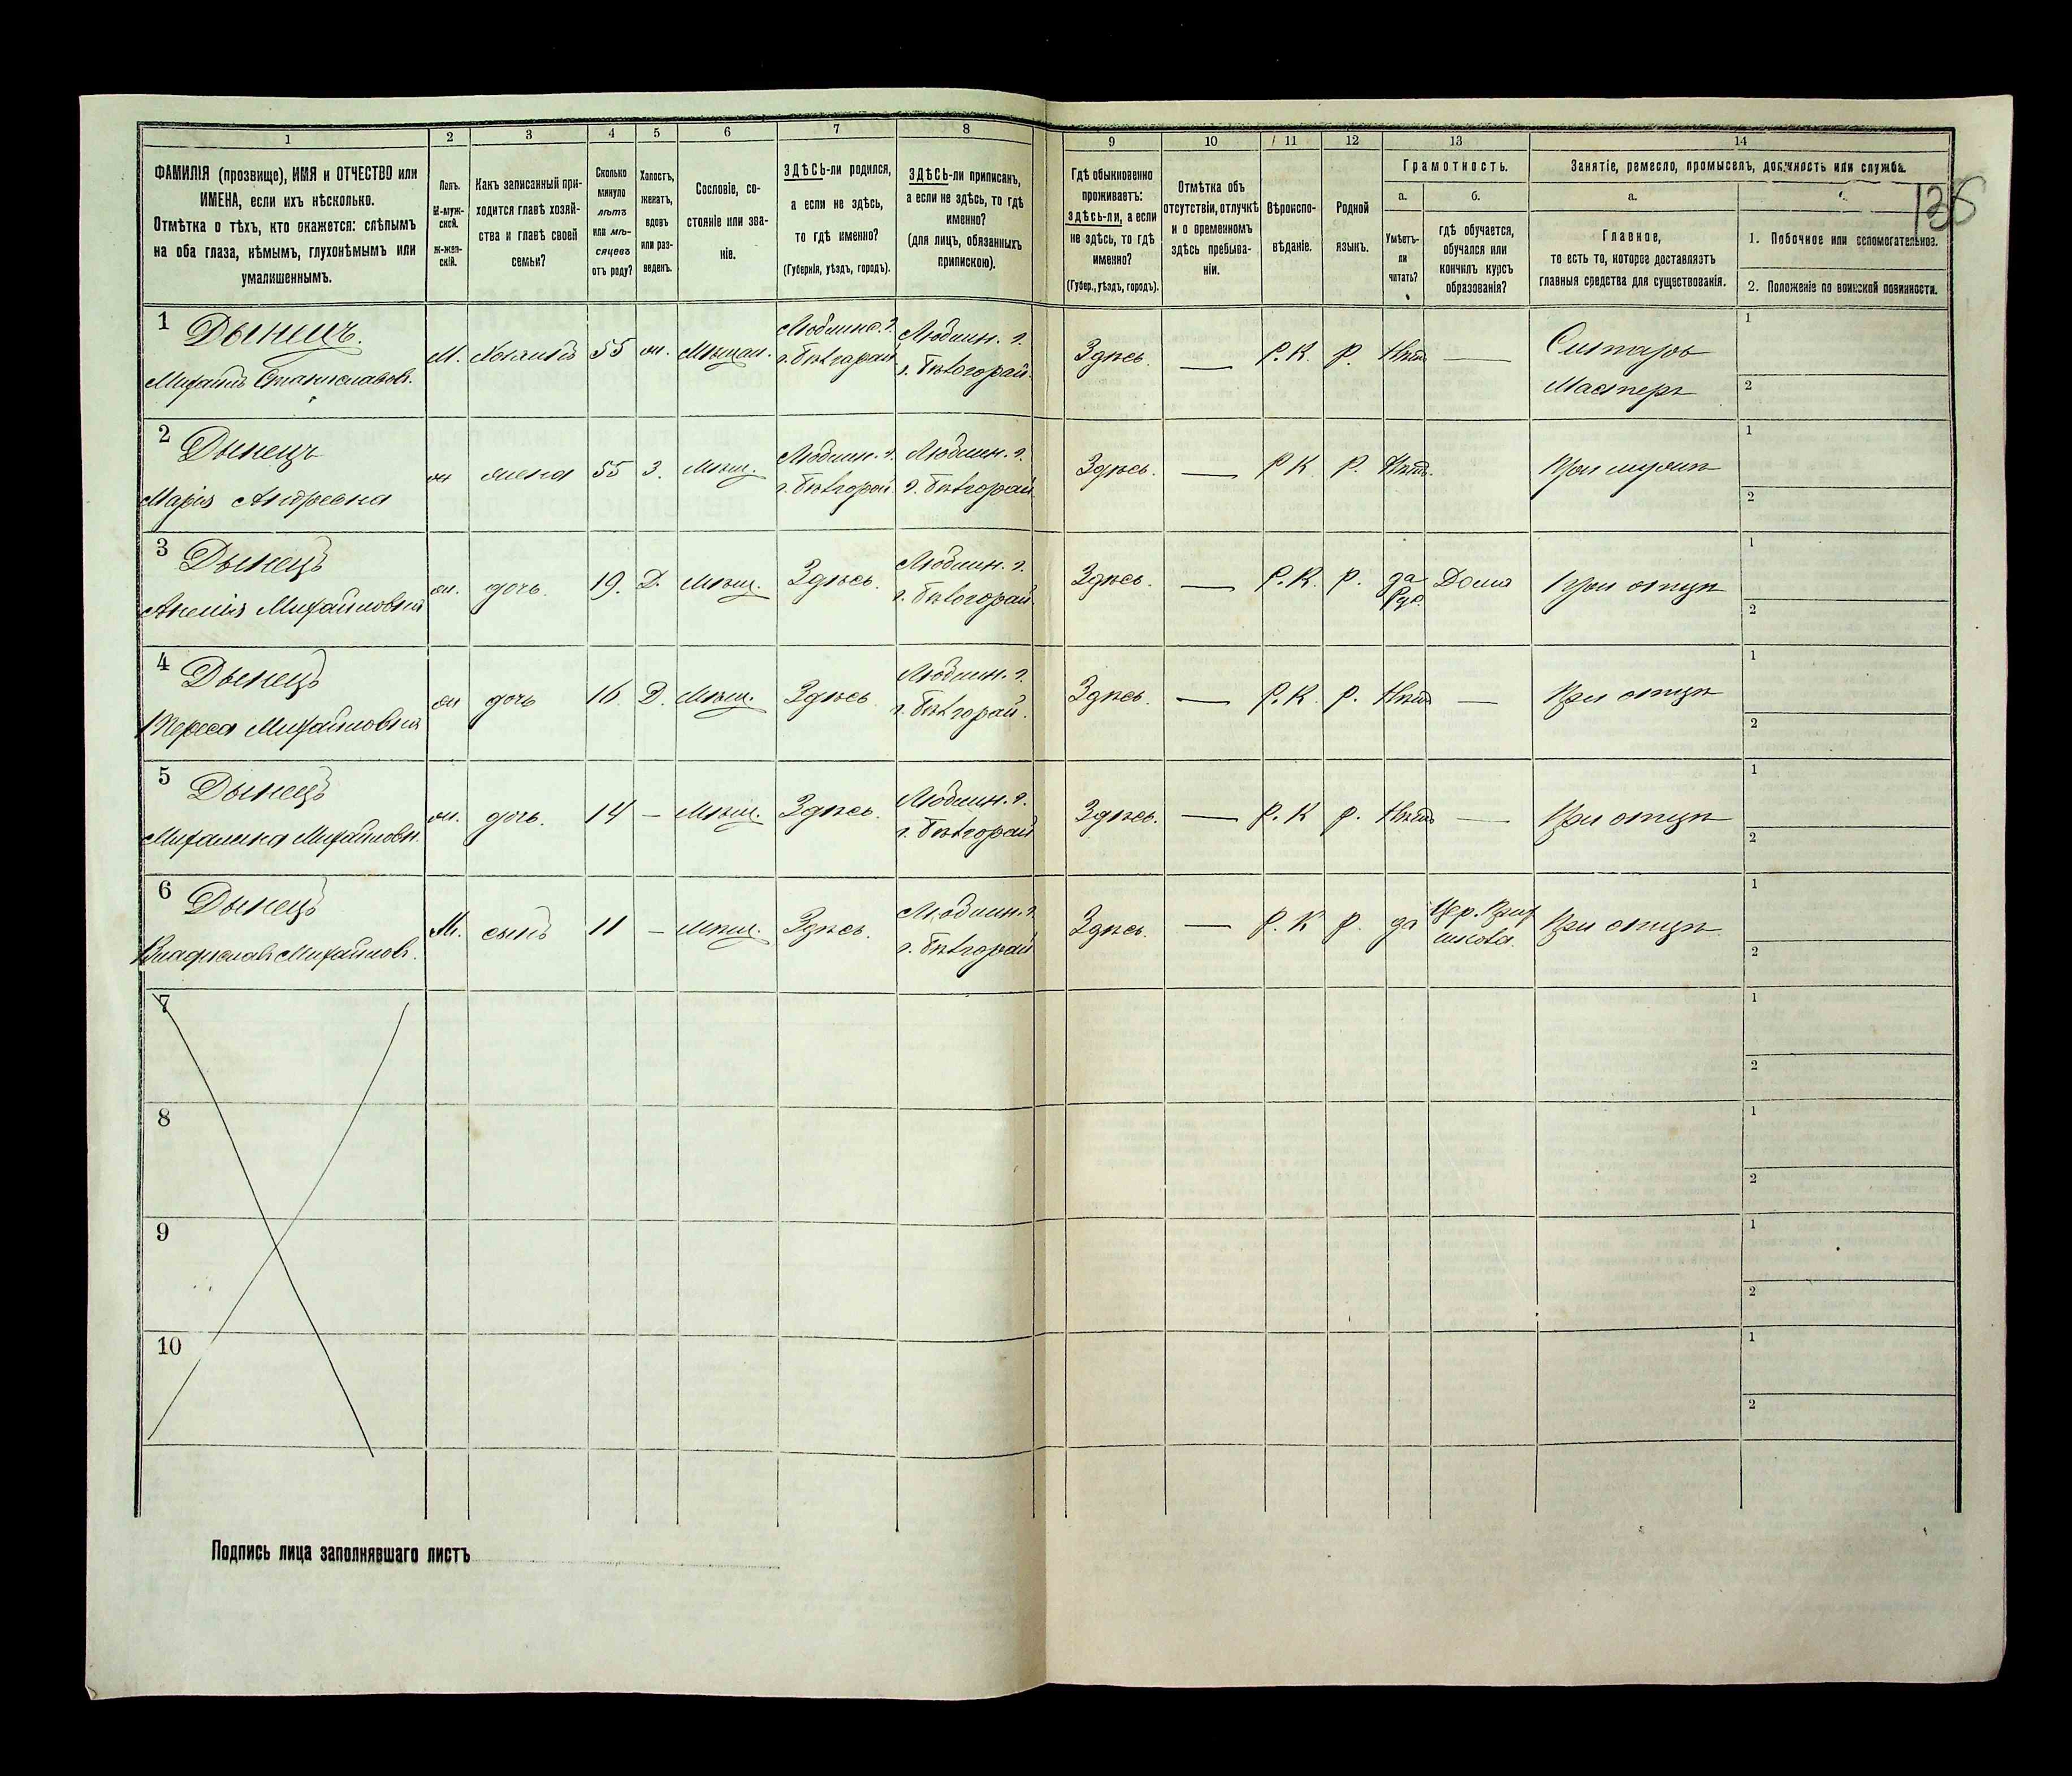 1 2 3 4 5 6 7 8 9 10 11 12 13 14
ФАМИЛІЯ (прозвище), ИМЯ и ОТЧЕСТВО или
ИМЕНА, если ихъ нѣсколько.
Отмѣтка о тѣхъ, кто окажется: слѣпымъ
на оба глаза, нѣмымъ, глухонѣмымъ или
умалишеннымъ.
Полъ.
М-муж-
ской.
ж-жен-
скій.
Какъ записанный при-
ходится главѣ хозяй-
ства и главѣ своей
семьи?
Сколько
минуло
лѣтъ
или мѣ-
сяцевъ
отъ роду?
Холостъ,
женатъ,
вдовъ
или раз-
веденъ.
Сословіе, со-
стояніе или зва-
ніе.
ЗДѢСЬ-ли родился,
а если не здѣсь,
то гдѣ именно?
(Губернія, уѣздъ, городъ).
ЗДѢСЬ-ли приписанъ,
а если не здѣсь, то гдѣ
именно?
(для лицъ, обязанныхъ
припискою).
Гдѣ обыкновенно
проживаетъ:
здѣсь-ли, а если
не здѣсь, то гдѣ
именно?
(Губер., уѣздъ, городъ).
Отмѣтка объ
отсутствіи, отлучкѣ
и о временномъ
здѣсь пребыва-
ніи.
Вѣроиспо-
вѣданіе.
Родной
языкъ.
Грамотность.
а.
Умѣетъ-
ли
читать?
б.
гдѣ обучается,
обучался или
кончилъ курсъ
образованія?
Занятіе, ремесло, промыселъ, должность или служба.
а.
Главное,
то есть то, которое доставляетъ
главныя средства для существованія.
136
1. Побочное или вспомогательное.
2. Положеніе по воинской повинности.
1 Дынецъ.
Михаилъ Станиславов.
М. Хозяинъ 55 ж. Мѣщан.
Люблинс. г.
г. Бѣлгорай
Люблин. г.
г. Бѣлгорай.
Здѣсь — Р. К. Р. Нѣтъ —
Ситарь
Мастеръ
1
2
2 Дынецъ
Марія Андреевна
ж жена 55 З. Мѣщ.
Люблин. г.
г. Бѣлгорай
Люблин. г.
г. Бѣлгорай
Здѣсь. — Р К Р. Нѣтъ. При мужѣ
1
2
3 Дынецъ
Анелія Михайловна
ж. дочь. 19. Д. Мѣщ. Здѣсь.
Люблин. г.
г. Бѣлгорай.
Здѣсь. — Р. К. Р. да
Рус. Дома При отцѣ
1
2
4 Дынецъ
Тереса Михайловна
ж дочь 16. Д. Мѣщ. Здѣсь
Люблин. г.
г. Бѣлгорай.
Здѣсь. — Р. К Р. Нѣтъ — При отцѣ
1
2
5 Дынецъ
Михалина Михайловн.
ж. дочь. 14 — Мѣщ. Здѣсь.
Люблин. г.
г. Бѣлгорай
Здѣсь. — Р. К Р. Нѣтъ — При отцѣ
1
2
6 Дынецъ
Владиславъ Михайлов.
М. сынъ 11 — Мѣщ. Здѣсь.
Люблин. г
г. Бѣлгорай
Здѣсь. — Р. К Р. да При отцѣ
1
2
7
1
2
8
1
2
9
1
2
10
1
2
Подпись лица заполнявшаго листъ